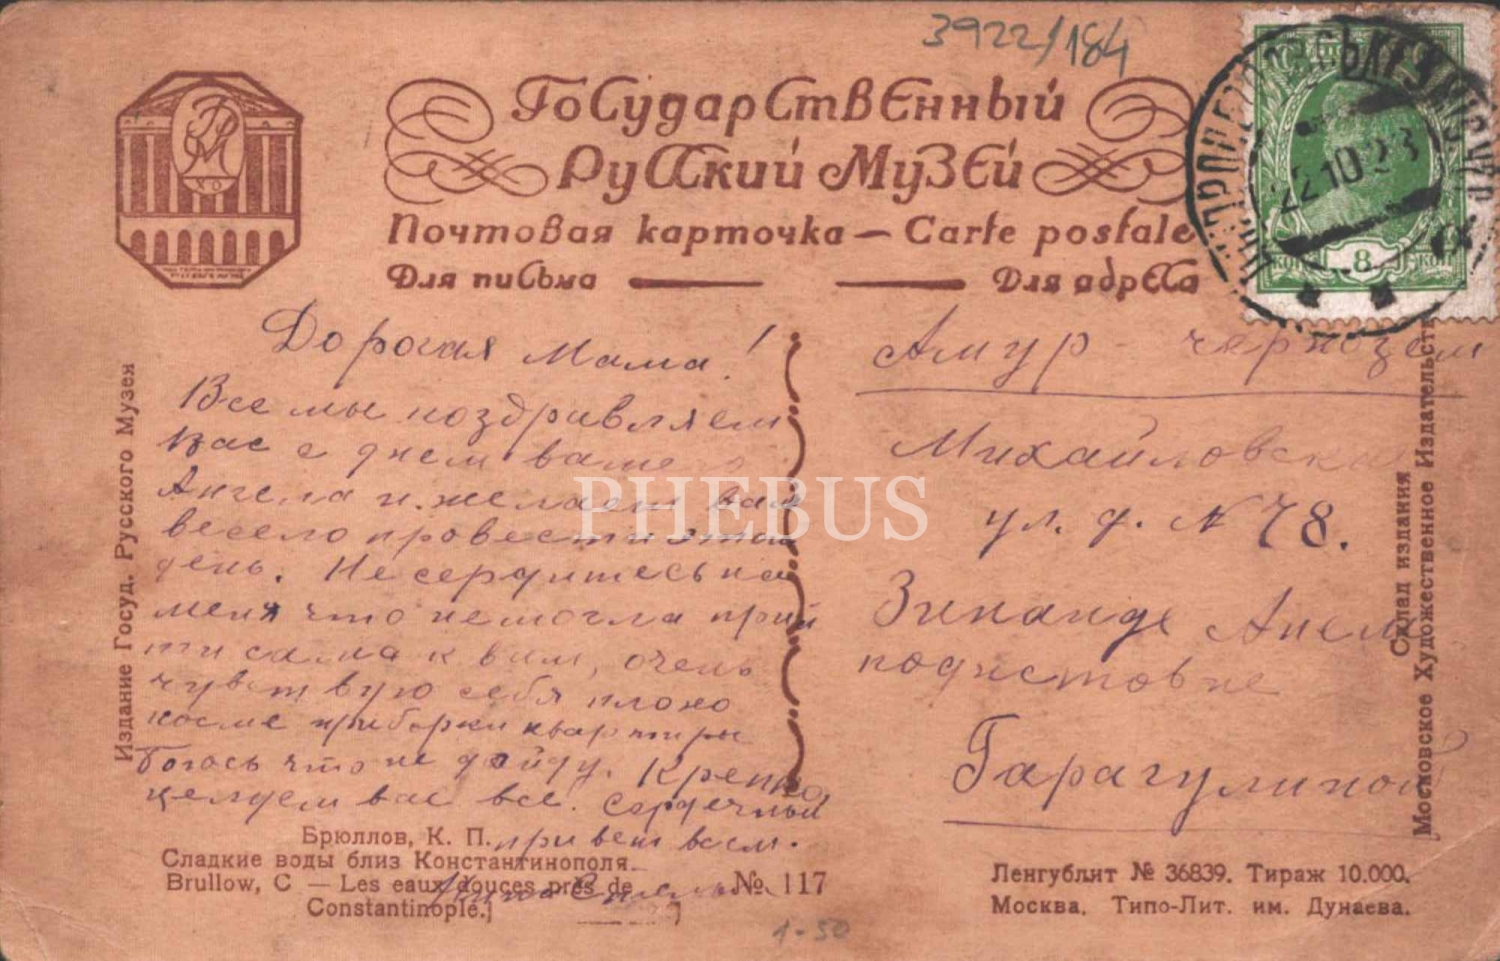 3922/184
Государственный
Русский Музей
Почтовая карточка — Carte postale
Для письма
Для адреса
22.10.23
8
КОП
КОП
Дорогая Мама!
Все мы поздравляем
вас с днем вашего
Ангела и желаем вам
весело провести этот
день. Не сердитесь на
меня что не могла прий
ти сама к вам, очень
чувствую себя плохо
после приборки квартиры
боюсь что не дойду. Крепко
целуем вас все. Сердечный
привет всем.
Амур - чернозем
Михайловская
ул. д. № 78.
Зинаиде Анем
подистовне
Гарагулиной
Издание Госуд. Русского Музея
Склад издания
Московское Художественное Издательство
Брюллов, К. П.
Сладкие воды близ Константинополя.
Brullow, C — Les eaux douces près de
Constantinople.
№ 117
Ленгублит № 36839. Тираж 10.000.
Москва. Типо-Лит. им. Дунаева.
1-50
PHEBUS